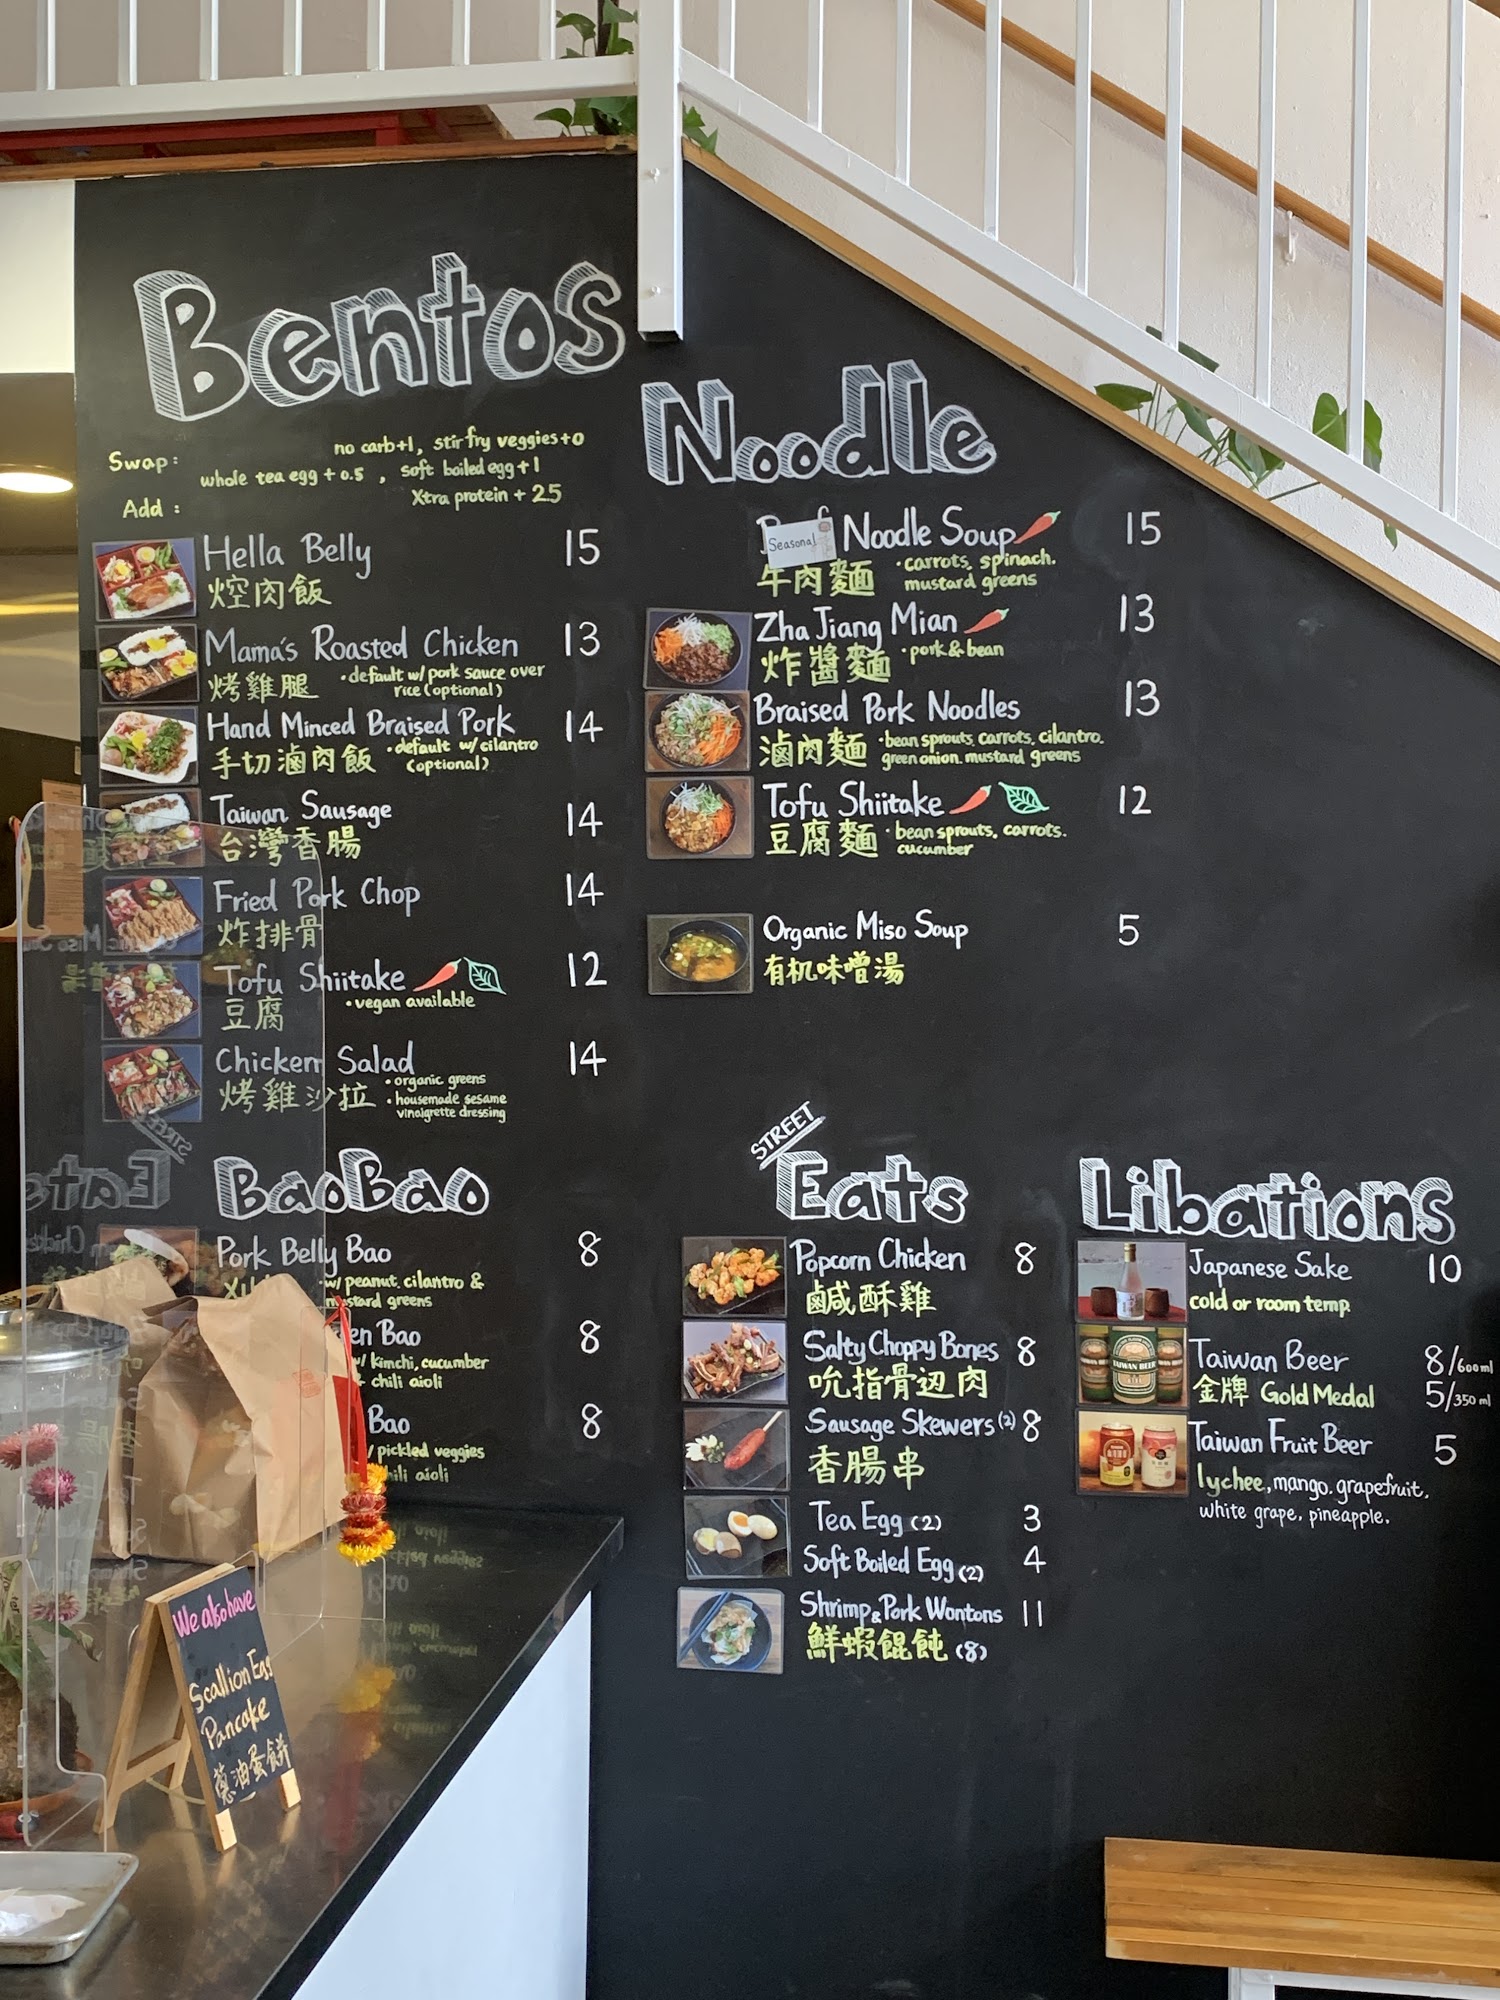 Bentos
Swap: no carb+1, stir fry veggies+0
whole tea egg + 0.5 , soft boiled egg + 1
Add : Xtra protein + 2.5
Hella Belly 15
焢肉飯
Mama's Roasted Chicken 13
烤雞腿 • default w/ pork sauce over
rice (optional)
Hand Minced Braised Pork 14
手切滷肉飯 • default w/ cilantro
(optional)
Taiwan Sausage 14
台灣香腸
Fried Pork Chop 14
炸排骨
Tofu Shiitake 12
豆腐 • vegan available
Chicken Salad 14
烤雞沙拉 • organic greens
• housemade sesame
vinaigrette dressing
BaoBao
Pork Belly Bao 8
w/ peanut, cilantro &
mustard greens
Bao 8
w/ kimchi, cucumber
& chili aioli
Bao 8
pickled veggies
chili aioli
Noodle
Seasonal Noodle Soup 15
牛肉麵 • carrots, spinach.
mustard greens
Zha Jiang Mian 13
炸醬麵 • pork & bean
Braised Pork Noodles 13
滷肉麵 • bean sprouts, carrots, cilantro.
green onion. mustard greens
Tofu Shiitake 12
豆腐麵 • bean sprouts, carrots.
cucumber
Organic Miso Soup 5
有机味噌湯
STREET
Eats
Popcorn Chicken 8
鹹酥雞
Salty Choppy Bones 8
吮指骨边肉
Sausage Skewers (2) 8
香腸串
Tea Egg (2) 3
Soft Boiled Egg (2) 4
Shrimp & Pork Wontons 11
鮮蝦餛飩 (8)
Libations
Japanese Sake 10
cold or room temp.
Taiwan Beer 8/600ml
金牌 Gold Medal 5/350ml
Taiwan Fruit Beer 5
lychee, mango. grapefruit.
white grape. pineapple.
TAIWAN BEER
We also have
Scallion Egg
Pancake
蔥油蛋餅